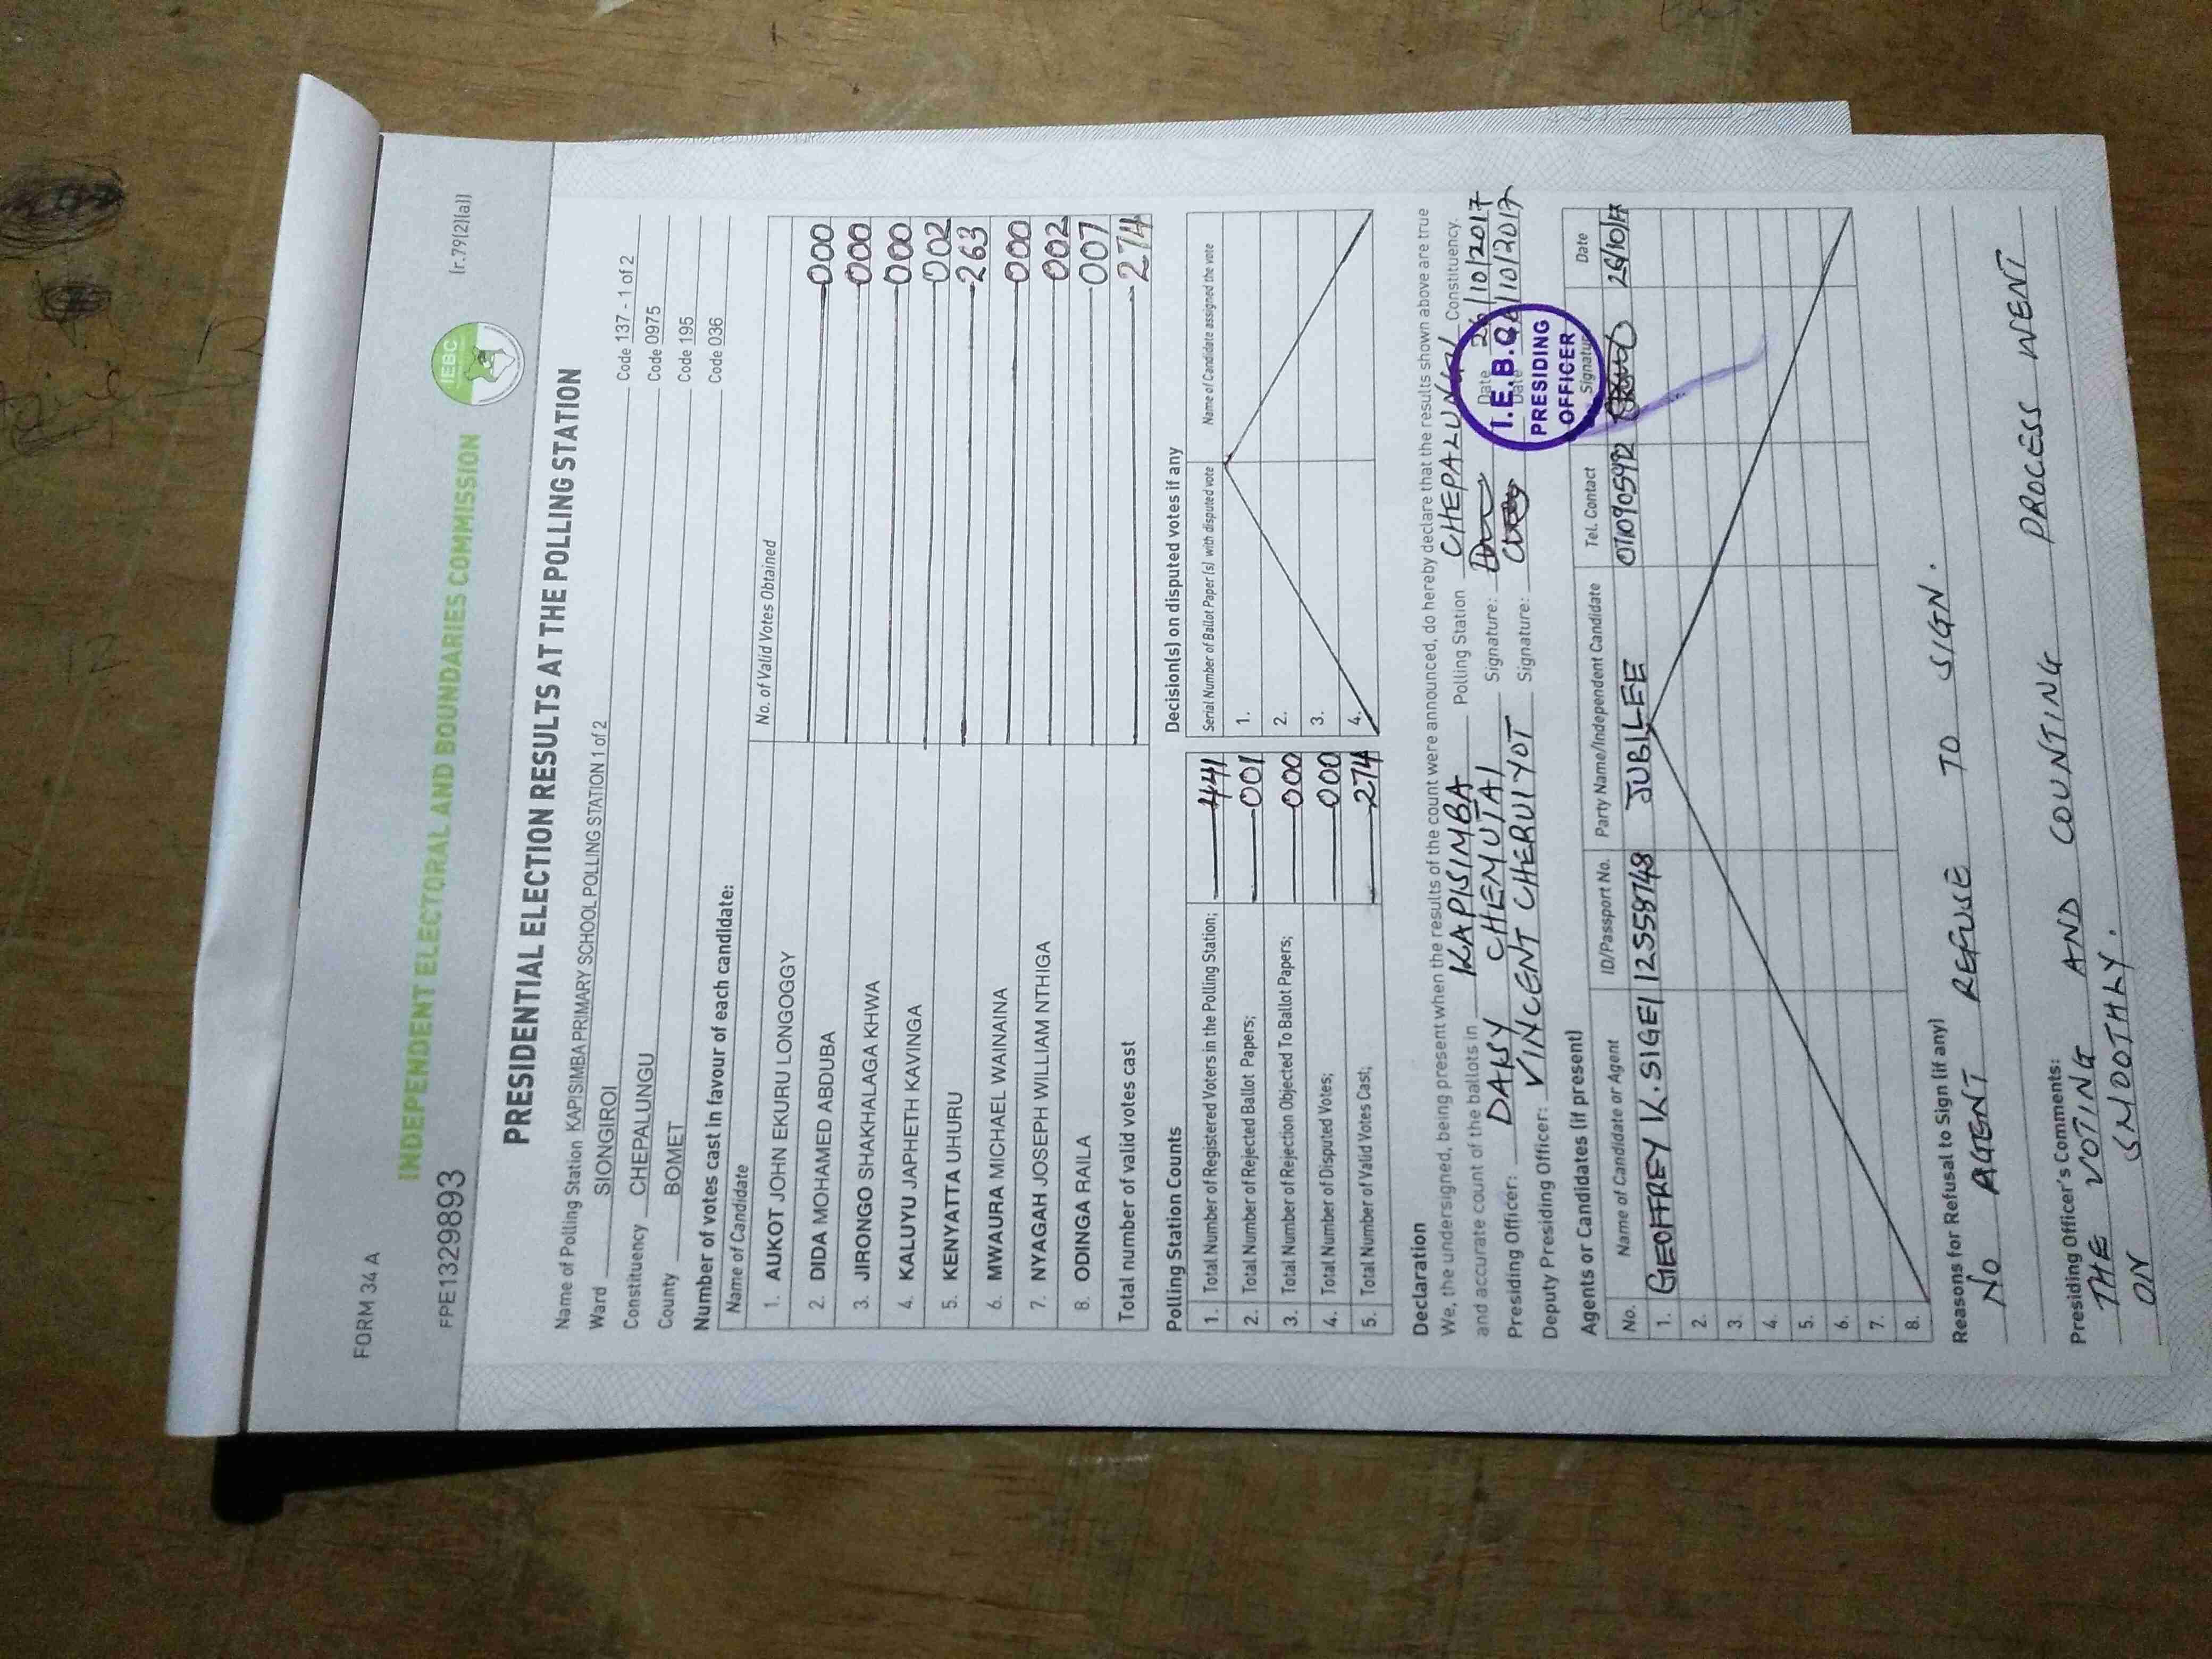 FORM 34 A
FPE1329893
INDEPENDENT ELECTORAL AND BOUNDARIES COMMISSION
IEBC
(r.79(2)(a))
PRESIDENTIAL ELECTION RESULTS AT THE POLLING STATION
Name of Polling Station KAPISIMBA PRIMARY SCHOOL POLLING STATION 1 of 2 Code 137 - 1 of 2
Ward SIONGIROI Code 0975
Constituency CHEPALUNGU Code 195
County BOMET Code 036
Number of votes cast in favour of each candidate:
Name of Candidate No. of Valid Votes Obtained
1. AUKOT JOHN EKURU LONGOGGY 000
2. DIDA MOHAMED ABDUBA 000
3. JIRONGO SHAKHALAGA KHWA 000
4. KALUYU JAPHETH KAVINGA 002
5. KENYATTA UHURU 263
6. MWAURA MICHAEL WAINAINA 000
7. NYAGAH JOSEPH WILLIAM NTHIGA 002
8. ODINGA RAILA 007
Total number of valid votes cast 274
Polling Station Counts
1. Total Number of Registered Voters in the Polling Station; 441
2. Total Number of Rejected Ballot Papers; 001
3. Total Number of Rejection Objected To Ballot Papers; 000
4. Total Number of Disputed Votes; 000
5. Total Number of Valid Votes Cast; 274
Decision(s) on disputed votes if any
Serial Number of Ballot Paper (s) with disputed vote Name of Candidate assigned the vote
1.
2.
3.
4.
Declaration
We, the undersigned, being present when the results of the count were announced, do hereby declare that the results shown above are true
and accurate count of the ballots in KAPISIMBA Polling Station CHEPALUNGU Constituency.
Presiding Officer: DAISY CHEMUTAI Signature: Date 26/10/2017
Deputy Presiding Officer: VINCENT CHERUIYOT Signature: Date 26/10/2017
I.E.B.C
PRESIDING
OFFICER
Agents or Candidates (if present)
No. Name of Candidate or Agent ID/Passport No. Party Name/Independent Candidate Tel. Contact Signature Date
1. GEOFFREY K. SIGEI 12558748 JUBILEE 071090592 26/10/17
2.
3.
4.
5.
6.
7.
8.
Reasons for Refusal to Sign (if any)
NO AGENT REFUSE TO SIGN.
Presiding Officer's Comments:
THE VOTING AND COUNTING PROCESS WENT
ON SMOOTHLY.